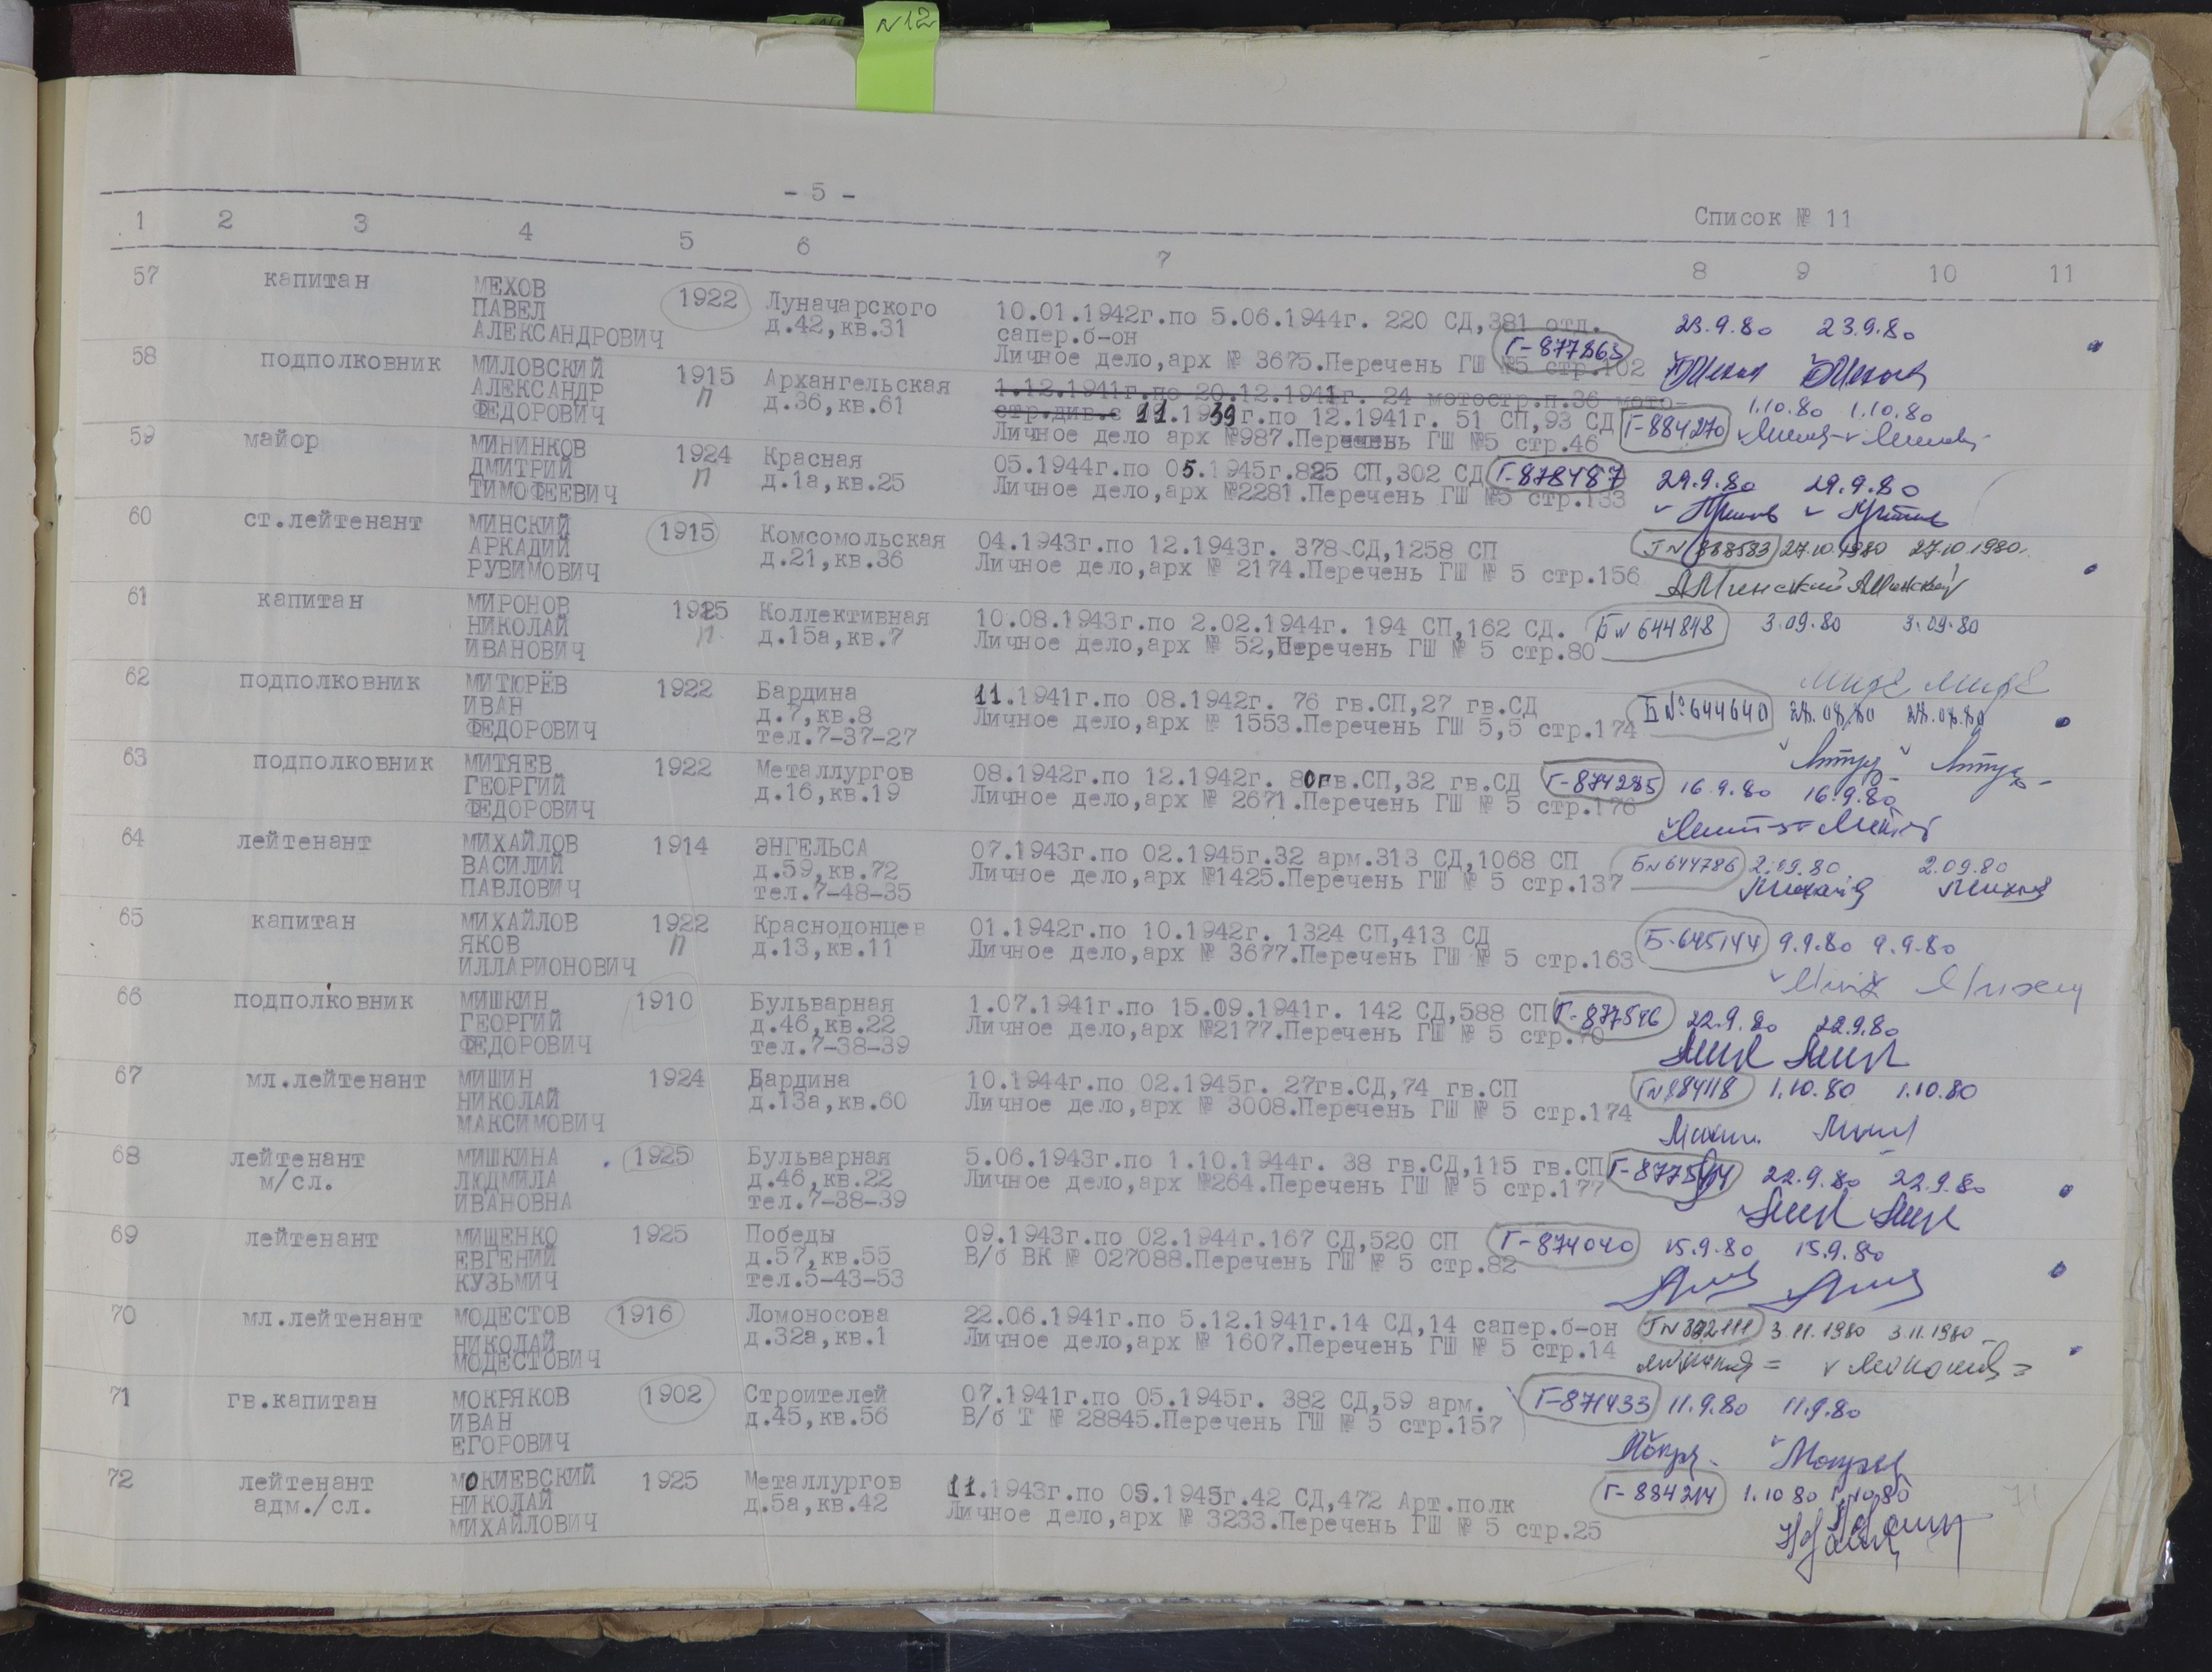 N12
- 5 -
Список № 11
1 2 3 4 5 6 7 8 9 10 11
57 капитан МЕХОВ ПАВЕЛ АЛЕКСАНДРОВИЧ 1922 Луначарского д.42,кв.31
10.01.1942г.по 5.06.1944г. 220 СД,381 отд.
сапер.б-он
Личное дело,арх № 3675.Перечень ГШ №5 стр.102
Г-877863 23.9.80 23.9.80
58 подполковник МИЛОВСКИЙ АЛЕКСАНДР ФЕДОРОВИЧ 1915 П Архангельская д.36,кв.61
1.12.1941г.по 20.12.1941г. 24 мотостр.п.36 мото-
стр.див.с 11.1939г.по 12.1941г. 51 СП,93 СД
Личное дело арх №987.Перечень ГШ №5 стр.46
Г-884270 1.10.80 1.10.80
59 майор МИНИНКОВ ДМИТРИЙ ТИМОФЕЕВИЧ 1924 П Красная д.1а,кв.25
05.1944г.по 05.1945г.825 СП,302 СД
Личное дело,арх №2281.Перечень ГШ №5 стр.133
Г-878487 29.9.80 29.9.80
60 ст.лейтенант МИНСКИЙ АРКАДИЙ РУВИМОВИЧ 1915 Комсомольская д.21,кв.36
04.1943г.по 12.1943г. 378 СД,1258 СП
Личное дело,арх № 2174.Перечень ГШ № 5 стр.156
ГN 888583 27.10.1980 27.10.1980.
АМинский АМинский
61 капитан МИРОНОВ НИКОЛАЙ ИВАНОВИЧ 1925 П. Коллективная д.15а,кв.7
10.08.1943г.по 2.02.1944г. 194 СП,162 СД.
Личное дело,арх № 52,Перечень ГШ № 5 стр.80
БN 644848 3.09.80 3.09.80
62 подполковник МИТЮРЁВ ИВАН ФЕДОРОВИЧ 1922 Бардина д.7,кв.8 тел.7-37-27
11.1941г.по 08.1942г. 76 гв.СП,27 гв.СД
Личное дело,арх № 1553.Перечень ГШ 5,5 стр.174
Б №644640 28.08.80 28.08.80
63 подполковник МИТЯЕВ ГЕОРГИЙ ФЕДОРОВИЧ 1922 Металлургов д.16,кв.19
08.1942г.по 12.1942г. 80гв.СП,32 гв.СД
Личное дело,арх № 2671.Перечень ГШ № 5 стр.176
Г-874285 16.9.80 16.9.80
64 лейтенант МИХАЙЛОВ ВАСИЛИЙ ПАВЛОВИЧ 1914 ЭНГЕЛЬСА д.59,кв.72 тел.7-48-35
07.1943г.по 02.1945г.32 арм.313 СД,1068 СП
Личное дело,арх №1425.Перечень ГШ № 5 стр.137
БN644786 2.09.80 2.09.80
65 капитан МИХАЙЛОВ ЯКОВ ИЛЛАРИОНОВИЧ 1922 П Краснодонцев д.13,кв.11
01.1942г.по 10.1942г. 1324 СП,413 СД
Личное дело,арх № 3677.Перечень ГШ № 5 стр.163
Б-645144 9.9.80 9.9.80
66 подполковник МИШКИН ГЕОРГИЙ ФЕДОРОВИЧ 1910 Бульварная д.46,кв.22 тел.7-38-39
1.07.1941г.по 15.09.1941г. 142 СД,588 СП
Личное дело,арх №2177.Перечень ГШ № 5 стр.70
Г-877546 22.9.80 22.9.80
67 мл.лейтенант МИШИН НИКОЛАЙ МАКСИМОВИЧ 1924 Бардина д.13а,кв.60
10.1944г.по 02.1945г. 27гв.СД,74 гв.СП
Личное дело,арх № 3008.Перечень ГШ № 5 стр.174
ГN884118 1.10.80 1.10.80
68 лейтенант м/сл. МИШКИНА ЛЮДМИЛА ИВАНОВНА 1925 Бульварная д.46,кв.22 тел.7-38-39
5.06.1943г.по 1.10.1944г. 38 гв.СД,115 гв.СП
Личное дело,арх №264.Перечень ГШ № 5 стр.177
22.9.80 22.9.80
69 лейтенант МИЩЕНКО ЕВГЕНИЙ КУЗЬМИЧ 1925 Победы д.57,кв.55 тел.5-43-53
09.1943г.по 02.1944г.167 СД,520 СП
В/б ВК № 027088.Перечень ГШ № 5 стр.82
Г-874040 15.9.80 15.9.80
70 мл.лейтенант МОДЕСТОВ НИКОЛАЙ МОДЕСТОВИЧ 1916 Ломоносова д.32а,кв.1
22.06.1941г.по 5.12.1941г.14 СД,14 сапер.б-он
Личное дело,арх № 1607.Перечень ГШ № 5 стр.14
3.11.1980 3.11.1980
71 гв.капитан МОКРЯКОВ ИВАН ЕГОРОВИЧ 1902 Строителей д.45,кв.56
07.1941г.по 05.1945г. 382 СД,59 арм.
В/б Т № 28845.Перечень ГШ № 5 стр.157
Г-871433 11.9.80 11.9.80
72 лейтенант адм./сл. МОКИЕВСКИЙ НИКОЛАЙ МИХАЙЛОВИЧ 1925 Металлургов д.5а,кв.42
11.1943г.по 05.1945г.42 СД,472 Арт.полк
Личное дело,арх № 3233.Перечень ГШ № 5 стр.25
Г-884214 1.10 80 1.10.80
71